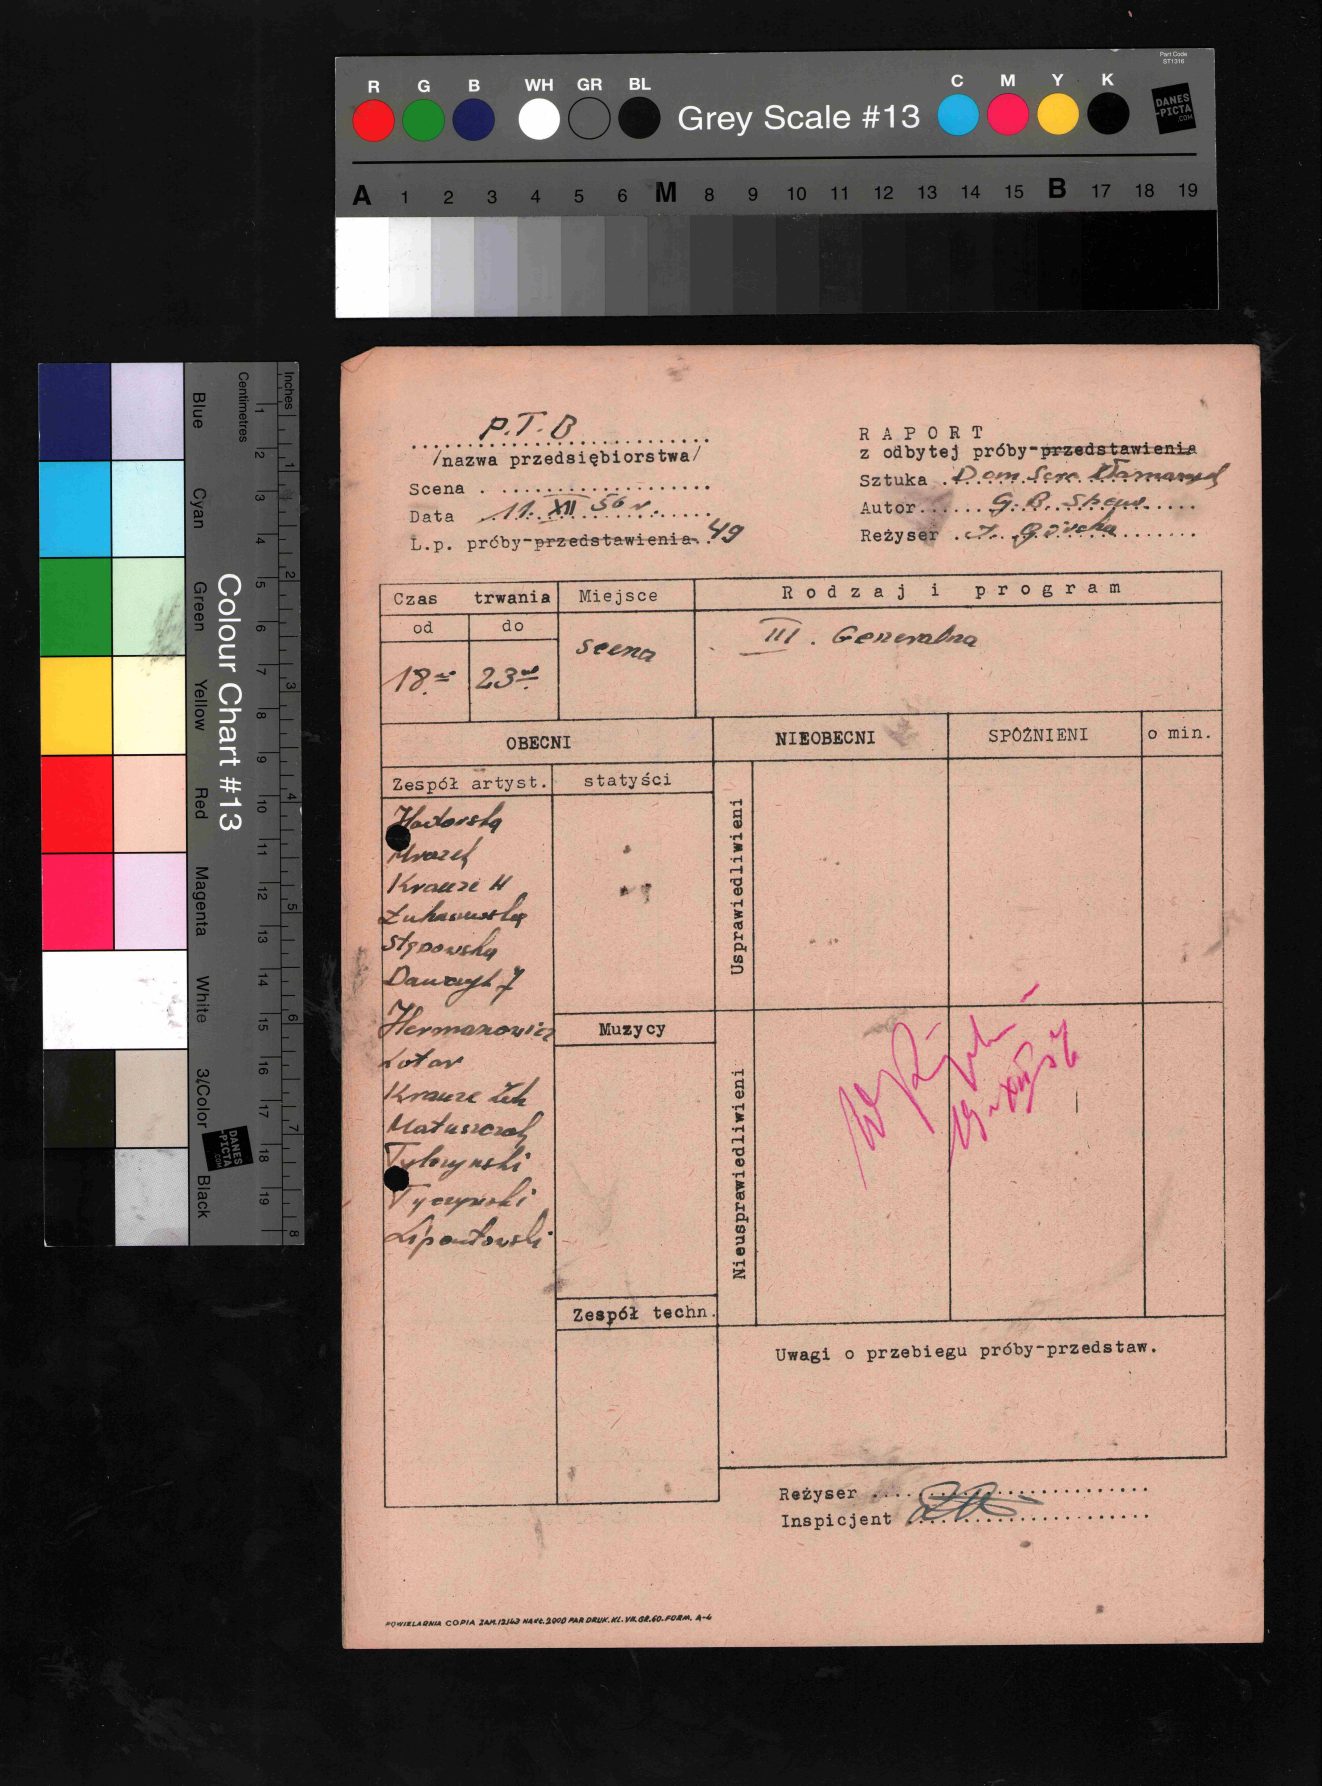 Part Code
ST1316
R G B WH GR BL
Grey Scale #13
C M Y K
DANES
-PICTA
.COM
A 1 2 3 4 5 6 M 8 9 10 11 12 13 14 15 B 17 18 19
Inches
Centimetres
Colour Chart #13
Blue Cyan Green Yellow Red Magenta White 3/Color Black
1 2 3 4 5 6 7 8 9 10 11 12 13 14 15 16 17 18 19
1 2 3 4 5 6 7 8
DANES
-PICTA
.COM
P.T.B
/nazwa przedsiębiorstwa/
Scena
Data 11. XII 56 r.
L.p. próby-przedstawienia. 49
RAPORT
z odbytej próby-przedstawienia
Sztuka Dom Serc Złamanych
Autor G. B. Shaw
Reżyser I. Górska
Czas trwania
od do
18 23
Miejsce
scena
Rodzaj i program
III. Generalna
OBECNI
NIEOBECNI
SPÓŹNIENI
o min.
Zespół artyst.
statyści
Mrozek
Krauze H
Łukaszewska
Stępowska
Hermanowicz
Lotar
Krauze
Matuszczak
Tyczyński
Usprawiedliwieni
Muzycy
Nieusprawiedliwieni
19-XII 56
Zespół techn.
Uwagi o przebiegu próby-przedstaw.
Reżyser
Inspicjent
POWIELARNIA COPIA ZAM. 12143 NAKŁ. 2000 PAR DRUK. KL. VII. GR. 60. FORM. A-4